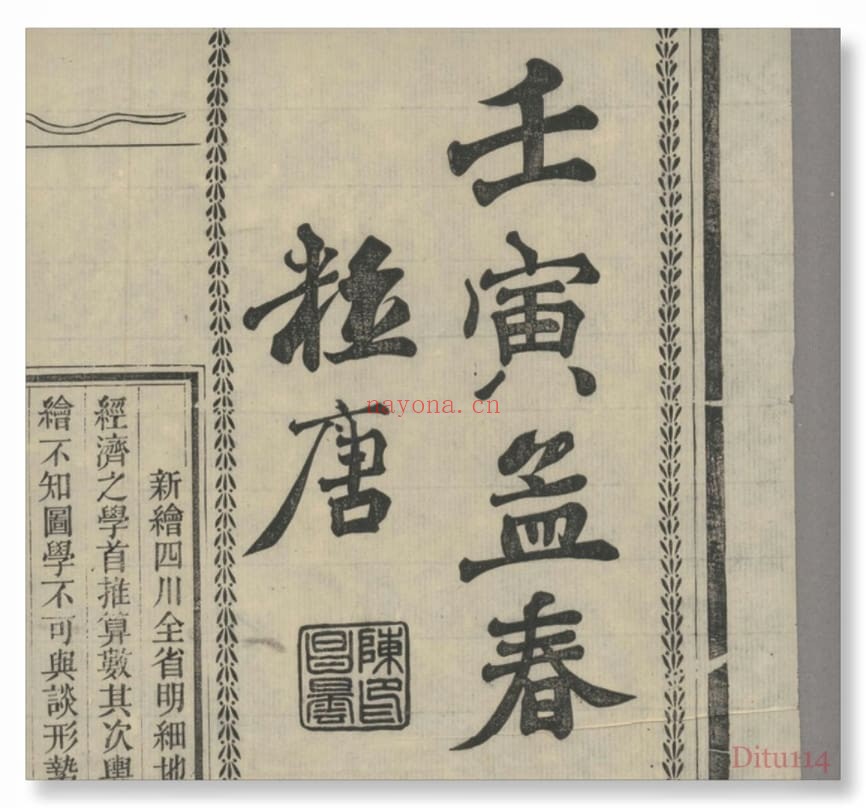 壬寅孟春
粒唐
陳印
昌曇
新繪四川全省明細地
經濟之學首推算數其次輿
繪不知圖學不可與談形勢
nayona.cn
Ditu114